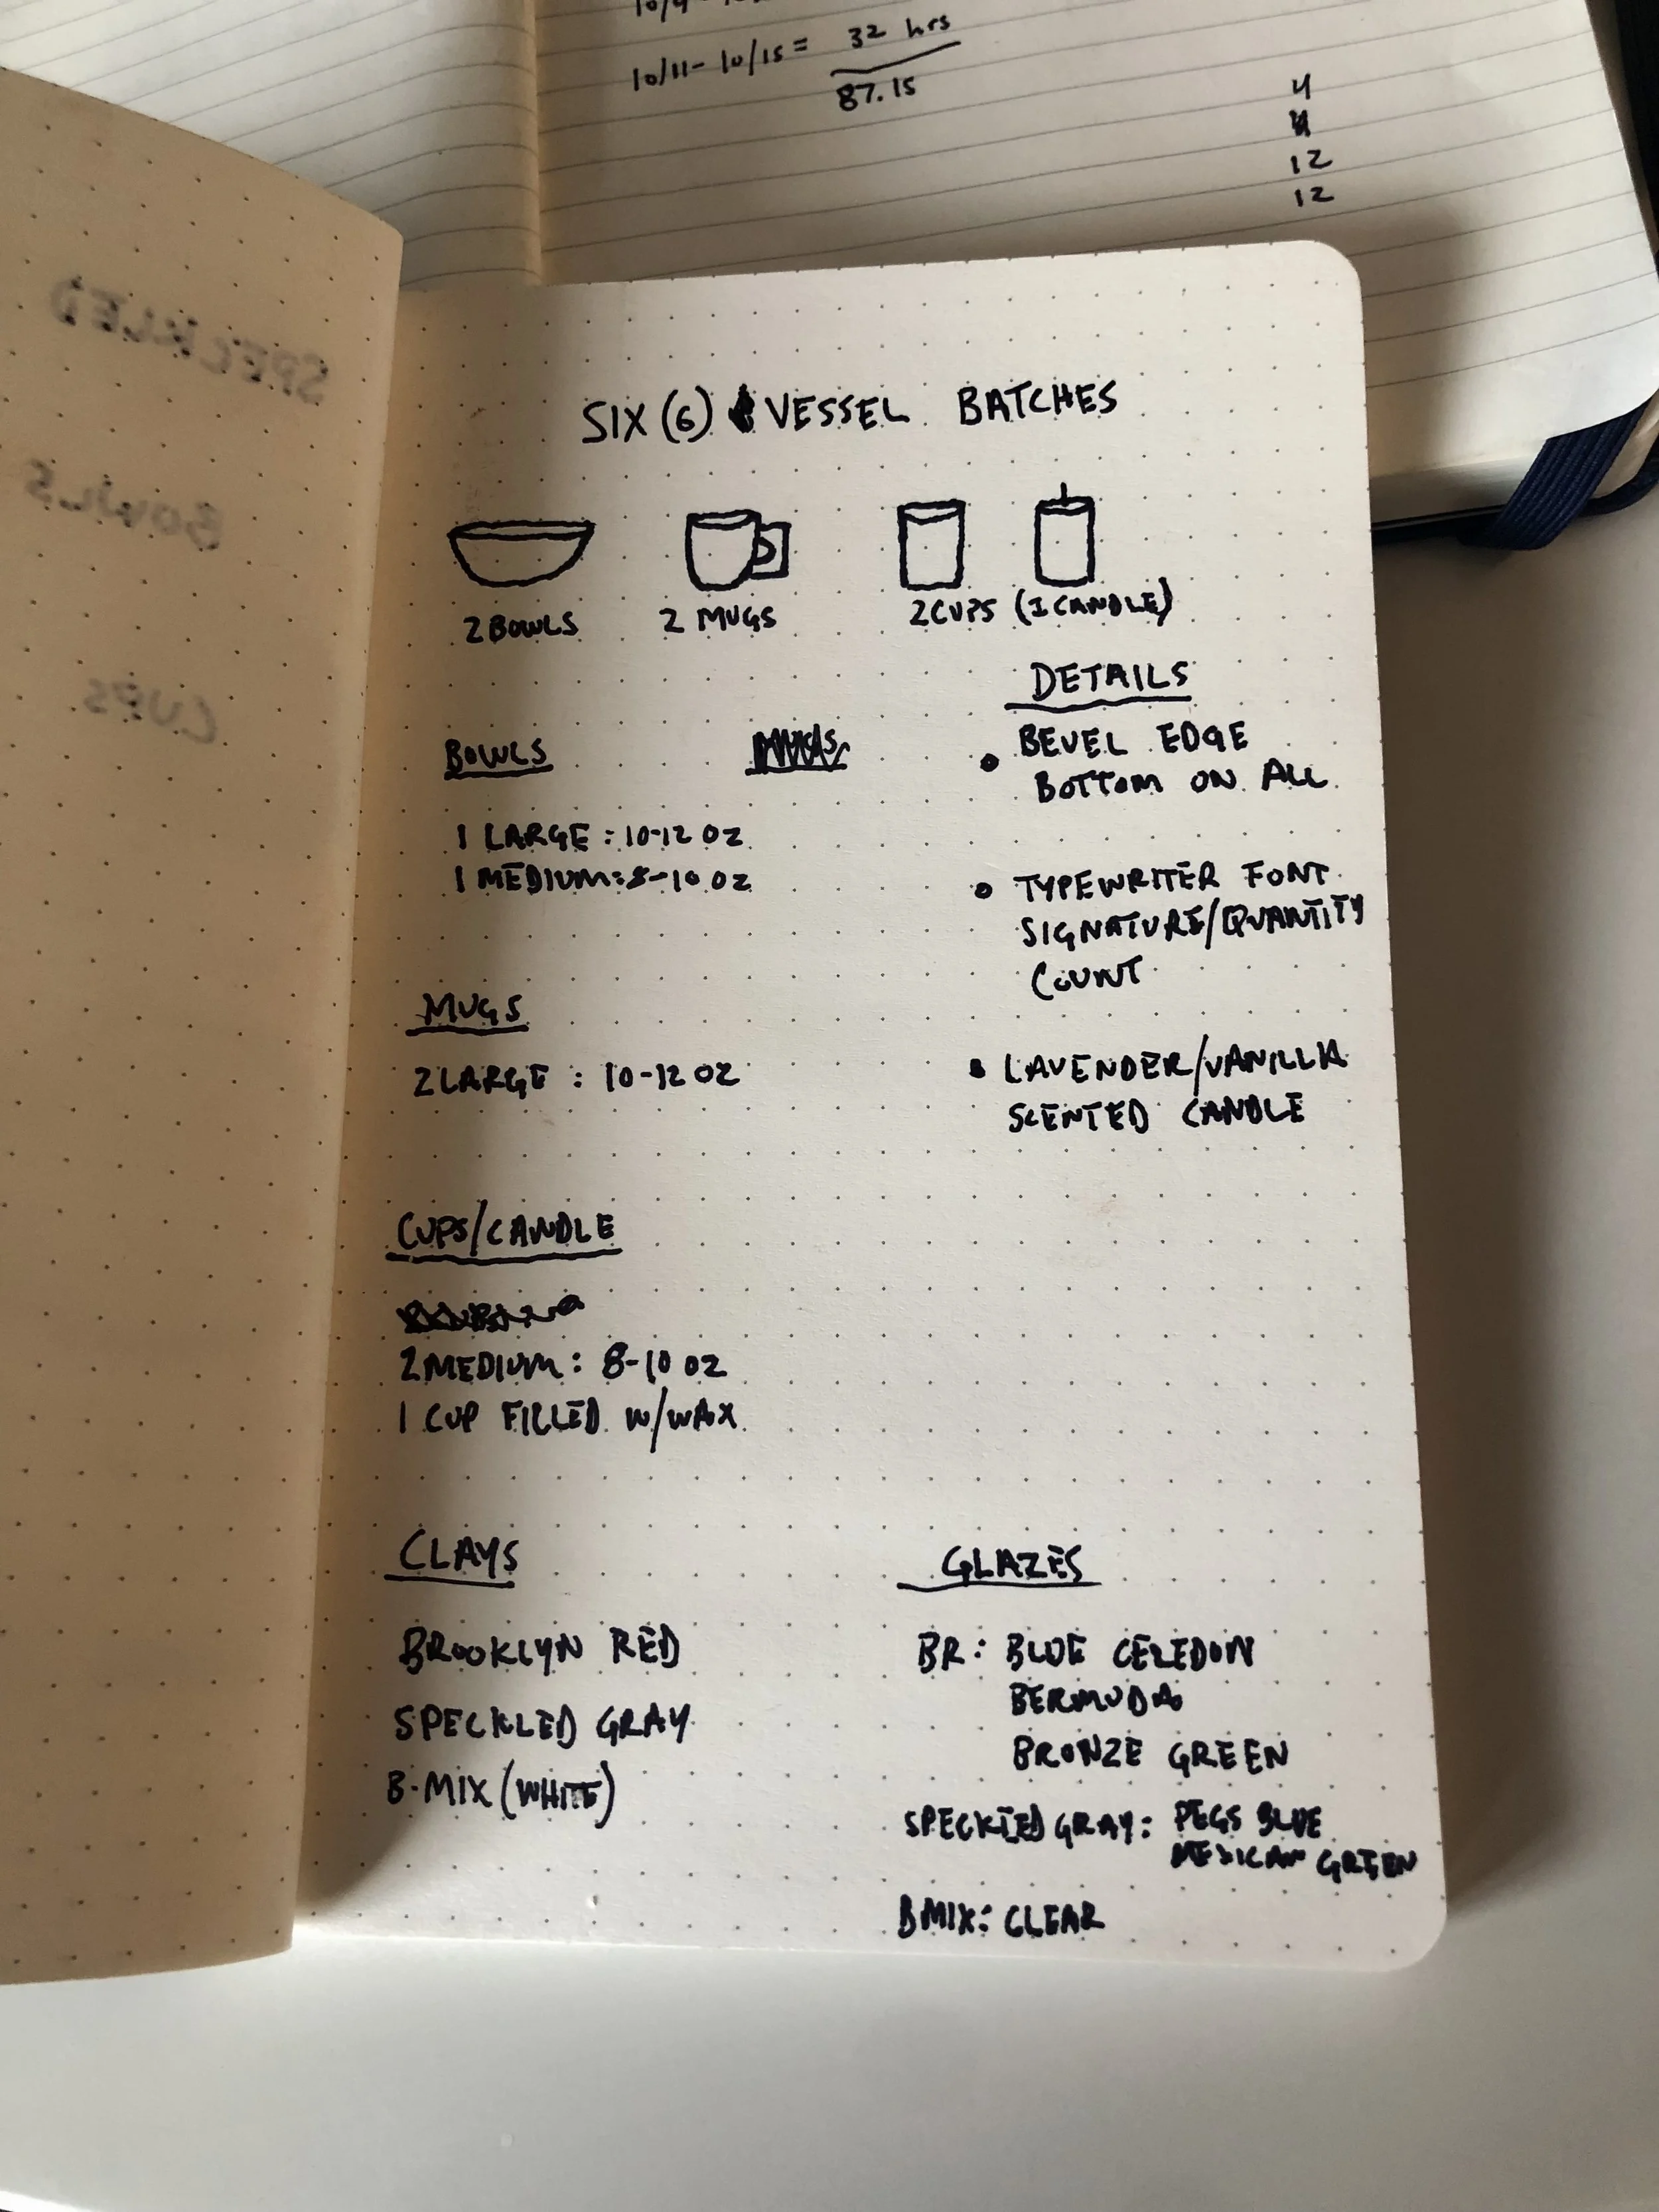 10/11 - 10/15 = 32 hrs
87.15
4
12
12
SPECKLED
BOWLS
CUPS
SIX (6) VESSEL BATCHES
2 BOWLS
2 MUGS
2 CUPS (1 CANDLE)
DETAILS
• BEVEL EDGE
BOTTOM ON ALL
• TYPEWRITER FONT
SIGNATURE/QUANTITY
COUNT
• LAVENDER/VANILLA
SCENTED CANDLE
BOWLS
1 LARGE : 10-12 OZ
1 MEDIUM: 8-10 OZ
MUGS
2 LARGE : 10-12 OZ
CUPS/CANDLE
2 MEDIUM: 8-10 OZ
1 CUP FILLED W/WAX
CLAYS
BROOKLYN RED
SPECKLED GRAY
B-MIX (WHITE)
GLAZES
BR: BLUE CELEDON
BERMUDA
BRONZE GREEN
SPECKLED GRAY: PEGS BLUE
MEXICAN GREEN
BMIX: CLEAR